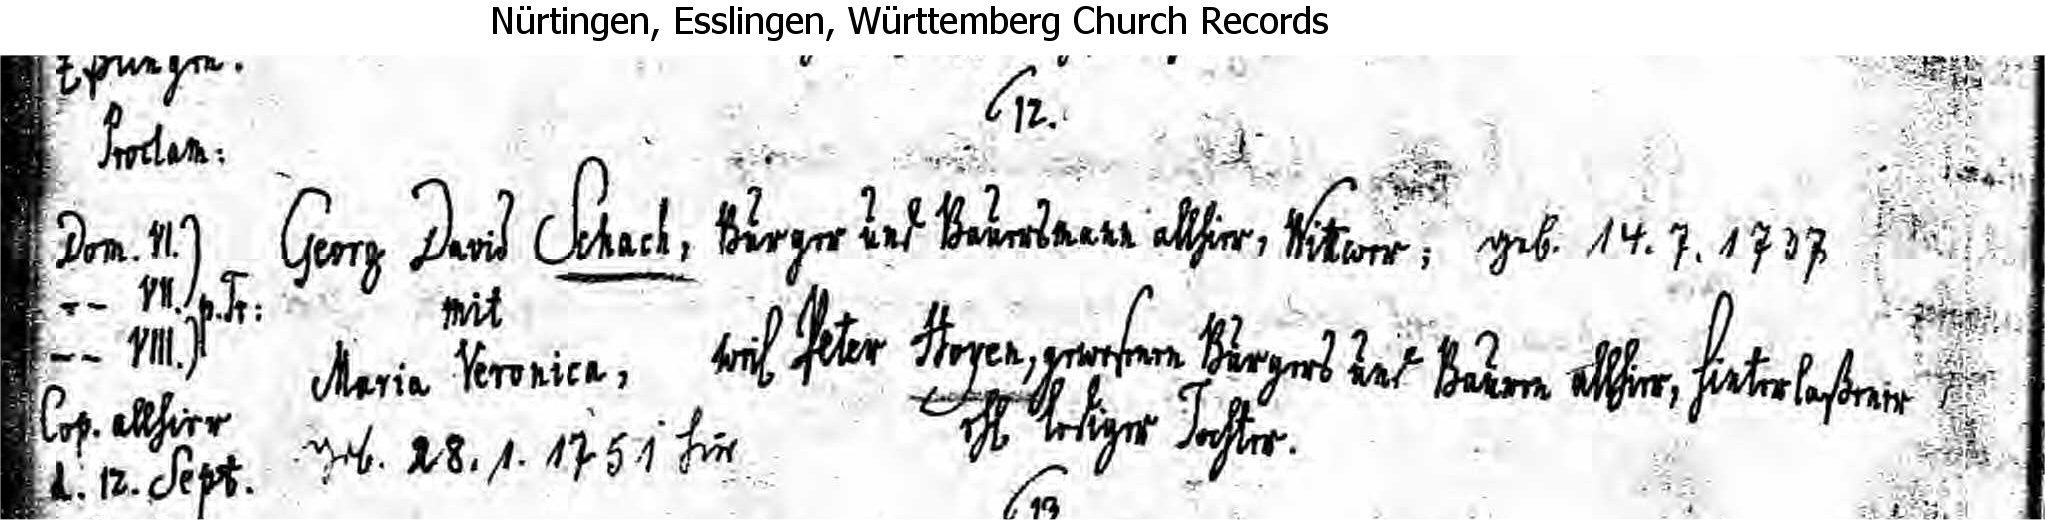 Nürtingen, Esslingen, Württemberg Church Records
(12.
Proclam:
Dom. VI.)
-- VII.) p. Tr:
-- VIII.)
Cop. allhier
d. 12. Sept.
Georg David Schach, Bürger und Bauersmann allhier, Wittwer; geb. 14. 7. 1737
mit
Maria Veronica, weil Peter Hoyen, gewesenen Bürgers und Bauren allhier, hinterlaßener
ehl lediger Tochter.
geb. 28. 1. 1751 hier
(13